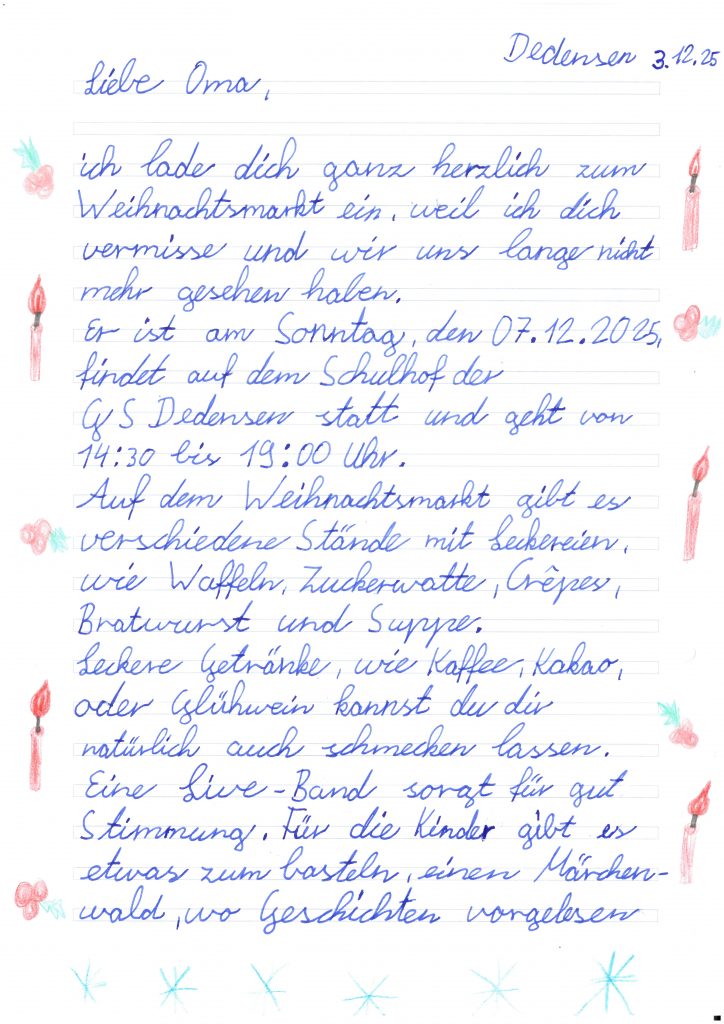 Dedensen 3.12.25
Liebe Oma,
ich lade dich ganz herzlich zum
Weihnachtsmarkt ein, weil ich dich
vermisse und wir uns lange nicht
mehr gesehen haben.
Er ist am Sonntag, den 07.12.2025,
findet auf dem Schulhof der
GS Dedensen statt und geht von
14:30 bis 19:00 Uhr.
Auf dem Weihnachtsmarkt gibt es
verschiedene Stände mit Leckereien,
wie Waffeln, Zuckerwatte, Crêpes,
Bratwurst und Suppe.
Leckere Getränke, wie Kaffee, Kakao,
oder Glühwein kannst du dir
natürlich auch schmecken lassen.
Eine Live-Band sorgt für gut
Stimmung. Für die Kinder gibt es
etwas zum basteln, einen Märchen-
wald, wo Geschichten vorgelesen